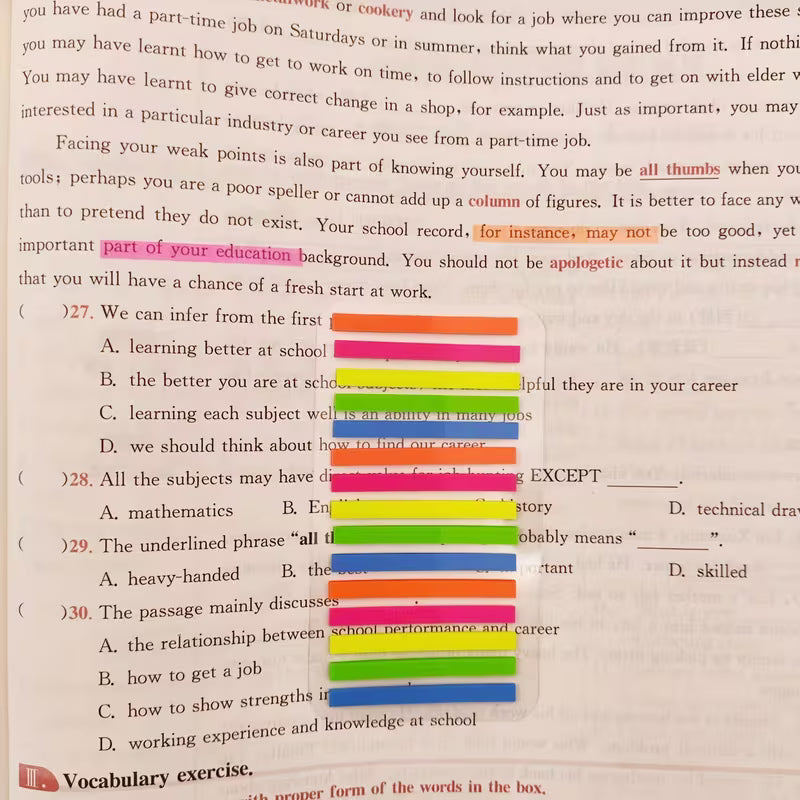 or cookery and look for a job where you can improve these
you have had a part-time job on Saturdays or in summer, think what you gained from it. If
you may have learnt how to get to work on time, to follow instructions and to get on with elder
You may have learnt to give correct change in a shop, for example. Just as important, you may
interested in a particular industry or career you see from a part-time job.
Facing your weak points is also part of knowing yourself. You may be all thumbs when you
tools; perhaps you are a poor speller or cannot add up a column of figures. It is better to face any
than to pretend they do not exist. Your school record, for instance, may not be too good, yet
important part of your education background. You should not be apologetic about it but instead
that you will have a chance of a fresh start at work.
( )27. We can infer from the first
A. learning better at school
B. the better you are at school subjects, they are in your career
C. learning each subject well is an ability in many jobs
D. we should think about how to find our career
( )28. All the subjects may have EXCEPT ______.
A. mathematics B. D. technical
( )29. The underlined phrase "all means "______".
A. heavy-handed B. the D. skilled
( )30. The passage mainly discusses
A. the relationship between school performance and career
B. how to get a job
C. how to show strengths
D. working experience and knowledge at school
III. Vocabulary exercise.
proper form of the words in the box.